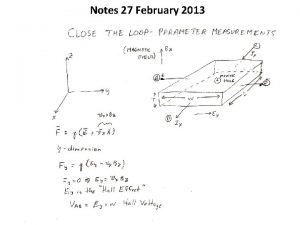 Notes 27 February 2013
CLOSE THE LOOP - PARAMETER MEASUREMENTS
(MAGNETIC FIELD)
Bz
z
y
x
F = q(E + v x B)
y-dimension
Fy = q(Ey - vxBz)
Fy = 0 ⇒ Ey = vxBz
Ey is the "Hall Effect"
VAB = Ey = w Hall Voltage